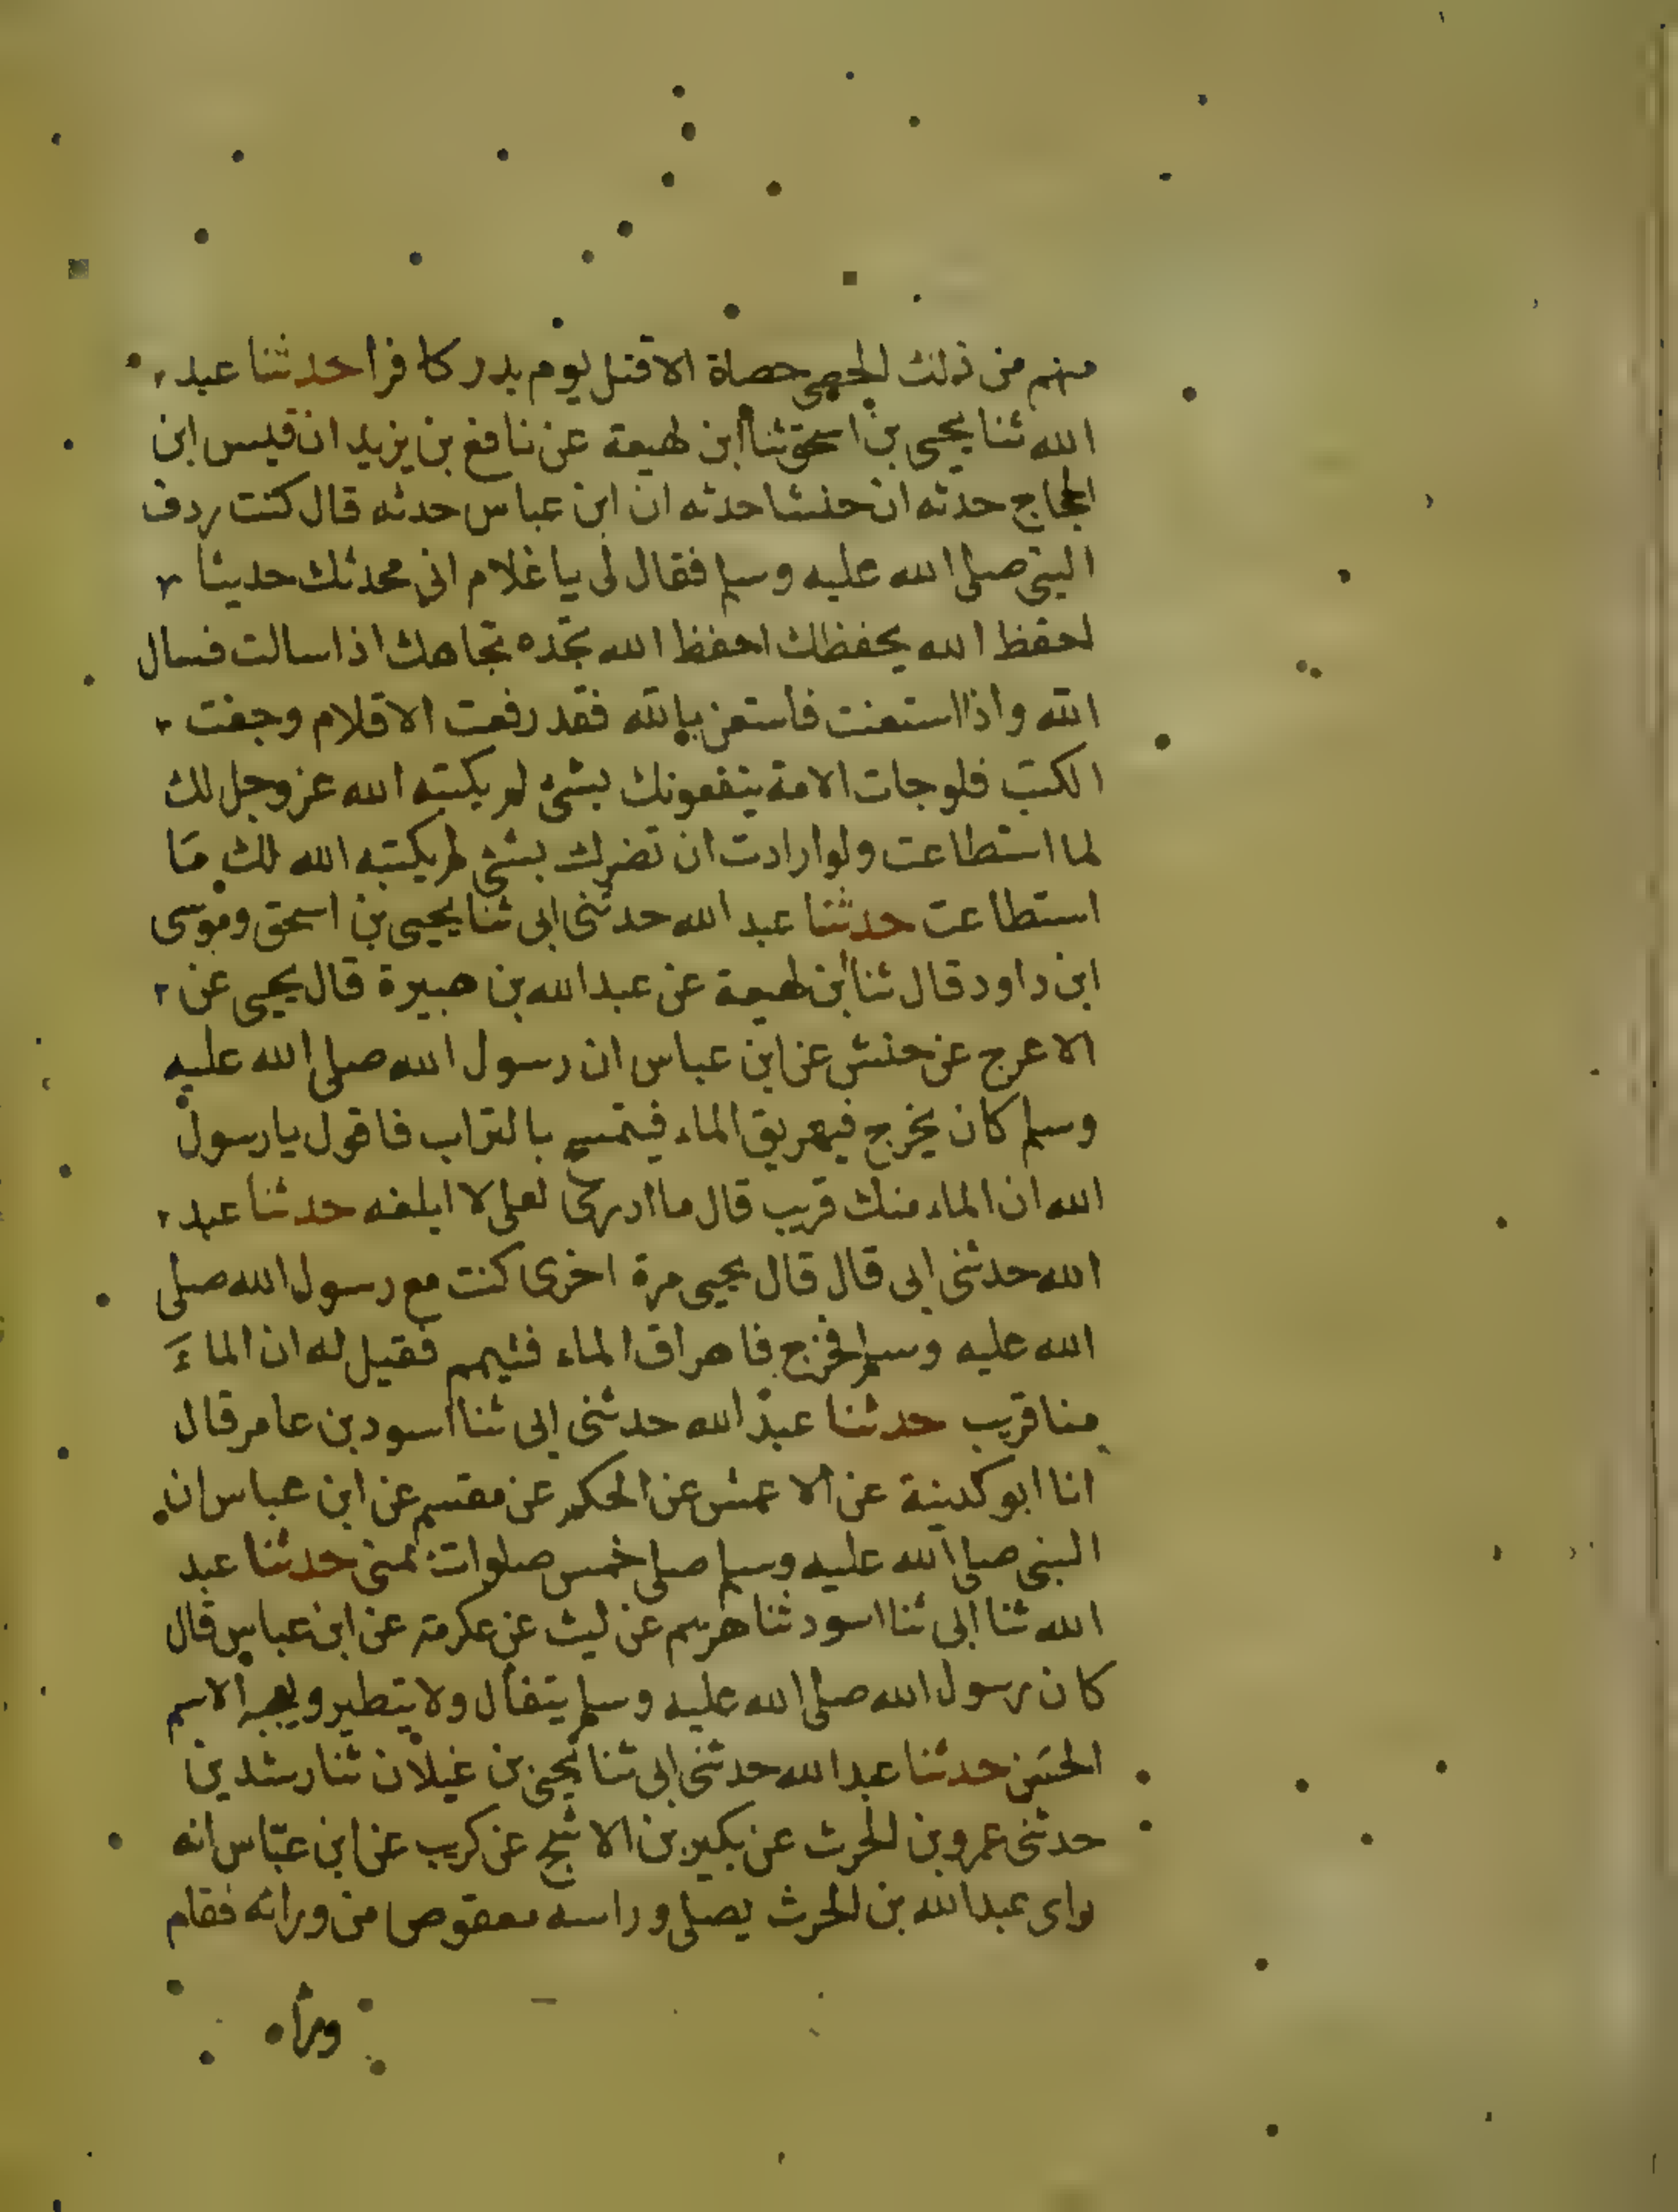 منهم من ذلك الحصى حصاة الا قتل يوم بدر كافرا حدثنا عبد
الله ثنا يحيى بن اسحق ثنا ابن لهيعة عن نافع بن يزيد ان قيس ابن
الحجاج حدثه ان حنشا حدثه ان ابن عباس حدثه قال كنت ردف
النبي صلى الله عليه وسلم فقال لى يا غلام انى محدثك حديثا
احفظ الله يحفظك احفظ الله تجده تجاهك اذا سالت فسال
الله واذا استعنت فاستعن بالله فقد رفعت الاقلام وجفت
الكتب فلو جات الامة ينفعونك بشئ لم يكتبه الله عز وجل لك
لما استطاعت ولو ارادت ان تضرك بشئ لم يكتبه الله لك ما
استطاعت حدثنا عبد الله حدثنى ابى ثنا يحيى بن اسحق وموسى
ابن داود قال ثنا ابن لهيعة عن عبد الله بن هبيرة قال يحيى عن
الاعرج عن حنش عن ابن عباس ان رسول الله صلى الله عليه
وسلم كان يخرج فيهريق الماء فيتمسح بالتراب فاقول يا رسول
الله ان الماء منك قريب قال ما ادرى لعلى لا ابلغه حدثنا عبد
الله حدثنى ابى قال قال يحيى مرة اخرى كنت مع رسول الله صلى
الله عليه وسلم فخرج فاهراق الماء فتيمم فقيل له ان الماءَ
منا قريب حدثنا عبد الله حدثنى ابى ثنا اسود بن عامر قال
انا ابو كدينة عن الاعمش عن الحكم عن مقسم عن ابن عباس ان
النبى صلى الله عليه وسلم صلى خمس صلوات بمنى حدثنا عبد
الله ثنا ابى ثنا اسود ثنا هريم عن ليث عن عكرمة عن ابن عباس قال
كان رسول الله صلى الله عليه وسلم يتفأل ولا يتطير ويعجبه الاسم
الحسَن حدثنا عبد الله حدثنى ابى ثنا يحيى بن غيلان ثنا رشدين
حدثنى عمرو بن الحرث عن بكير بن الاشج عن كريب عن ابن عبّاس انه
راى عبد الله بن الحرث يصلى وراسه معقوص من ورائه فقام
وراه